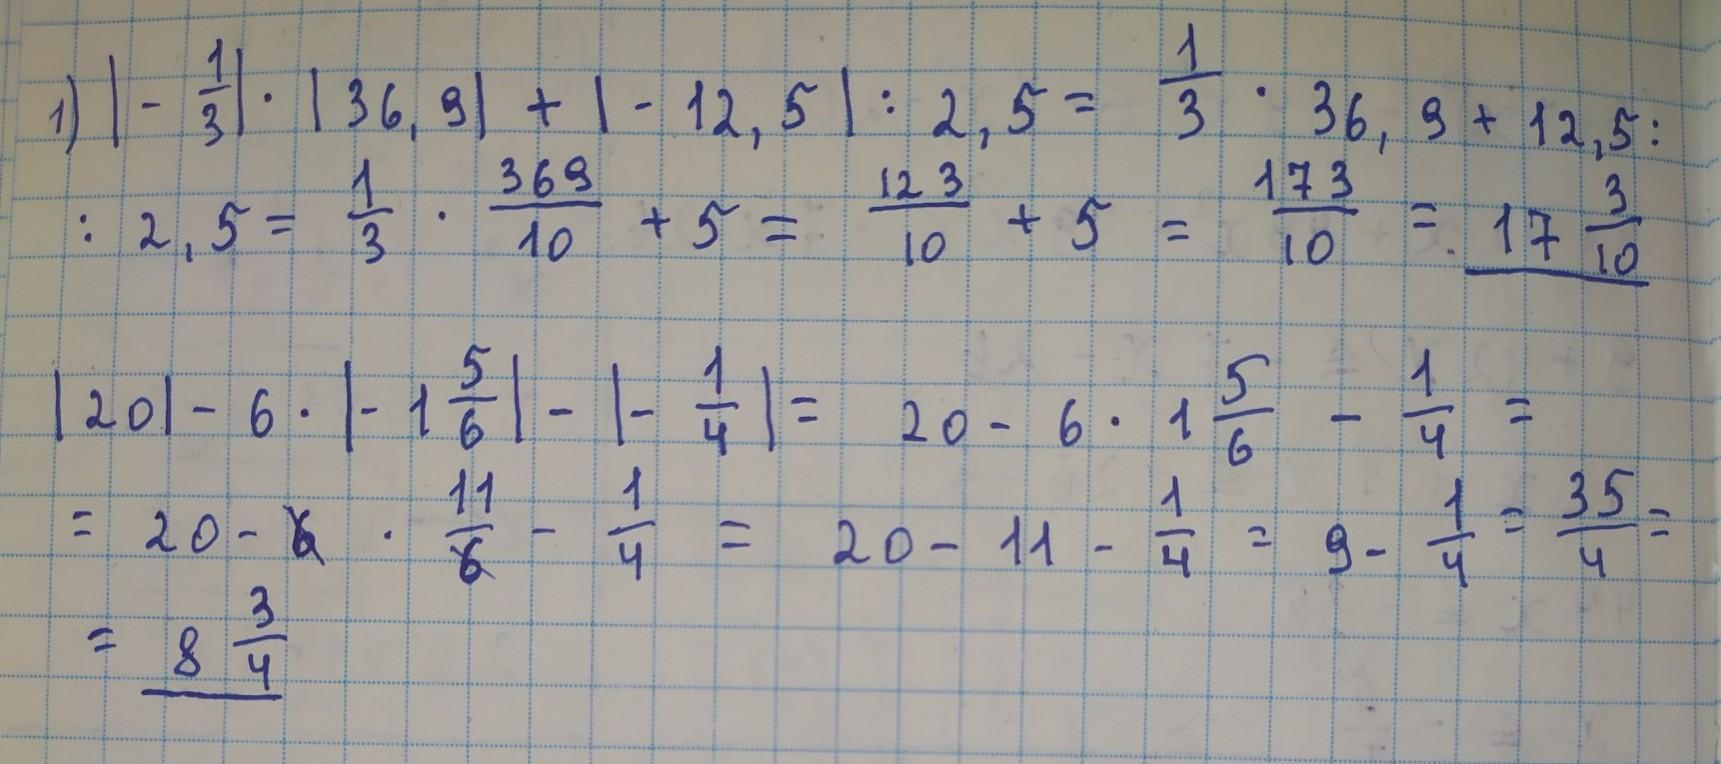 1) |- 1/3| · |36,9| + |-12,5| : 2,5 = 1/3 · 36,9 + 12,5 :
: 2,5 = 1/3 · 369/10 + 5 = 123/10 + 5 = 173/10 = 17 3/10
|20| - 6 · |-1 5/6| - |- 1/4| = 20 - 6 · 1 5/6 - 1/4 =
= 20 - 6 · 11/6 - 1/4 = 20 - 11 - 1/4 = 9 - 1/4 = 35/4 =
= 8 3/4